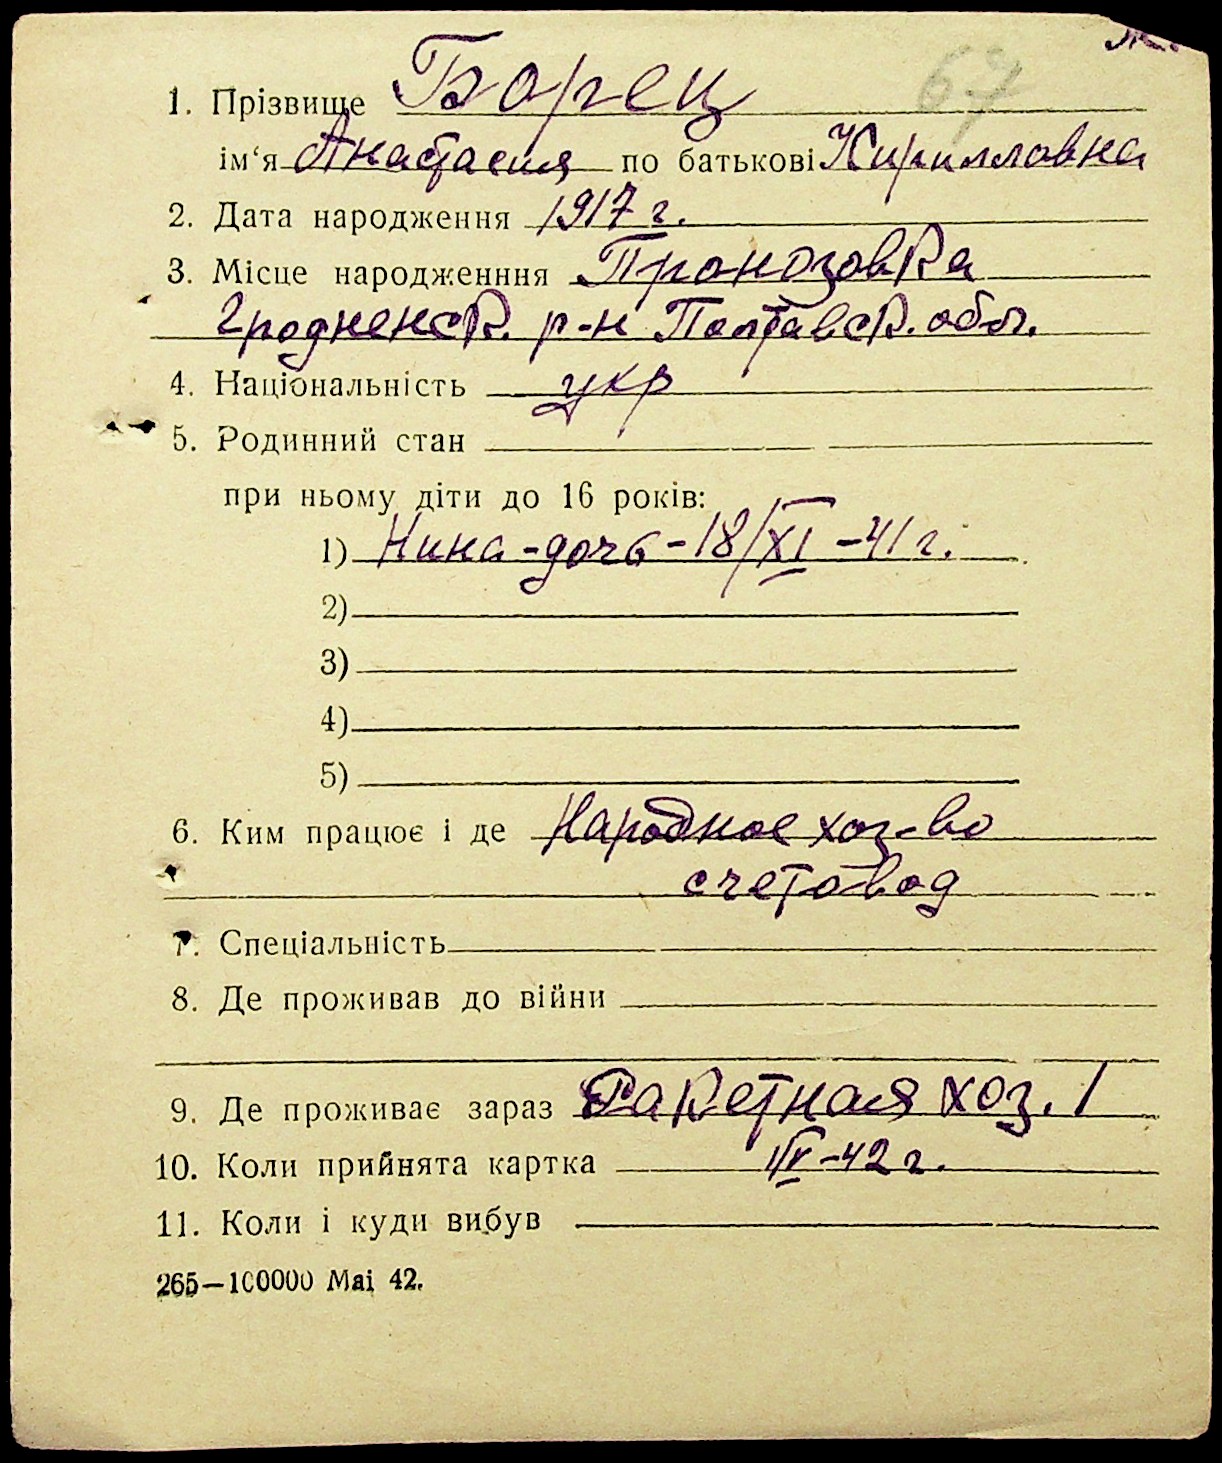 67
1. Прізвище Борец
ім‘я Анастасия по батькові Кирилловна
2. Дата народження 1917 г.
3. Місце народженння Пронозовка
Гродненск. р-н Полтавск. обл.
4. Національність укр
5. Родинний стан
при ньому діти до 16 років:
1) Нина - дочь - 18/XI - 41 г.
2)
3)
4)
5)
6. Ким працює і де Народное хоз-во
счетовод
7. Спеціальність
8. Де проживав до війни
9. Де проживає зараз Ракетная хоз. 1
10. Коли прийнята картка -42 г.
11. Коли і куди вибув
265—100000 Mai 42.